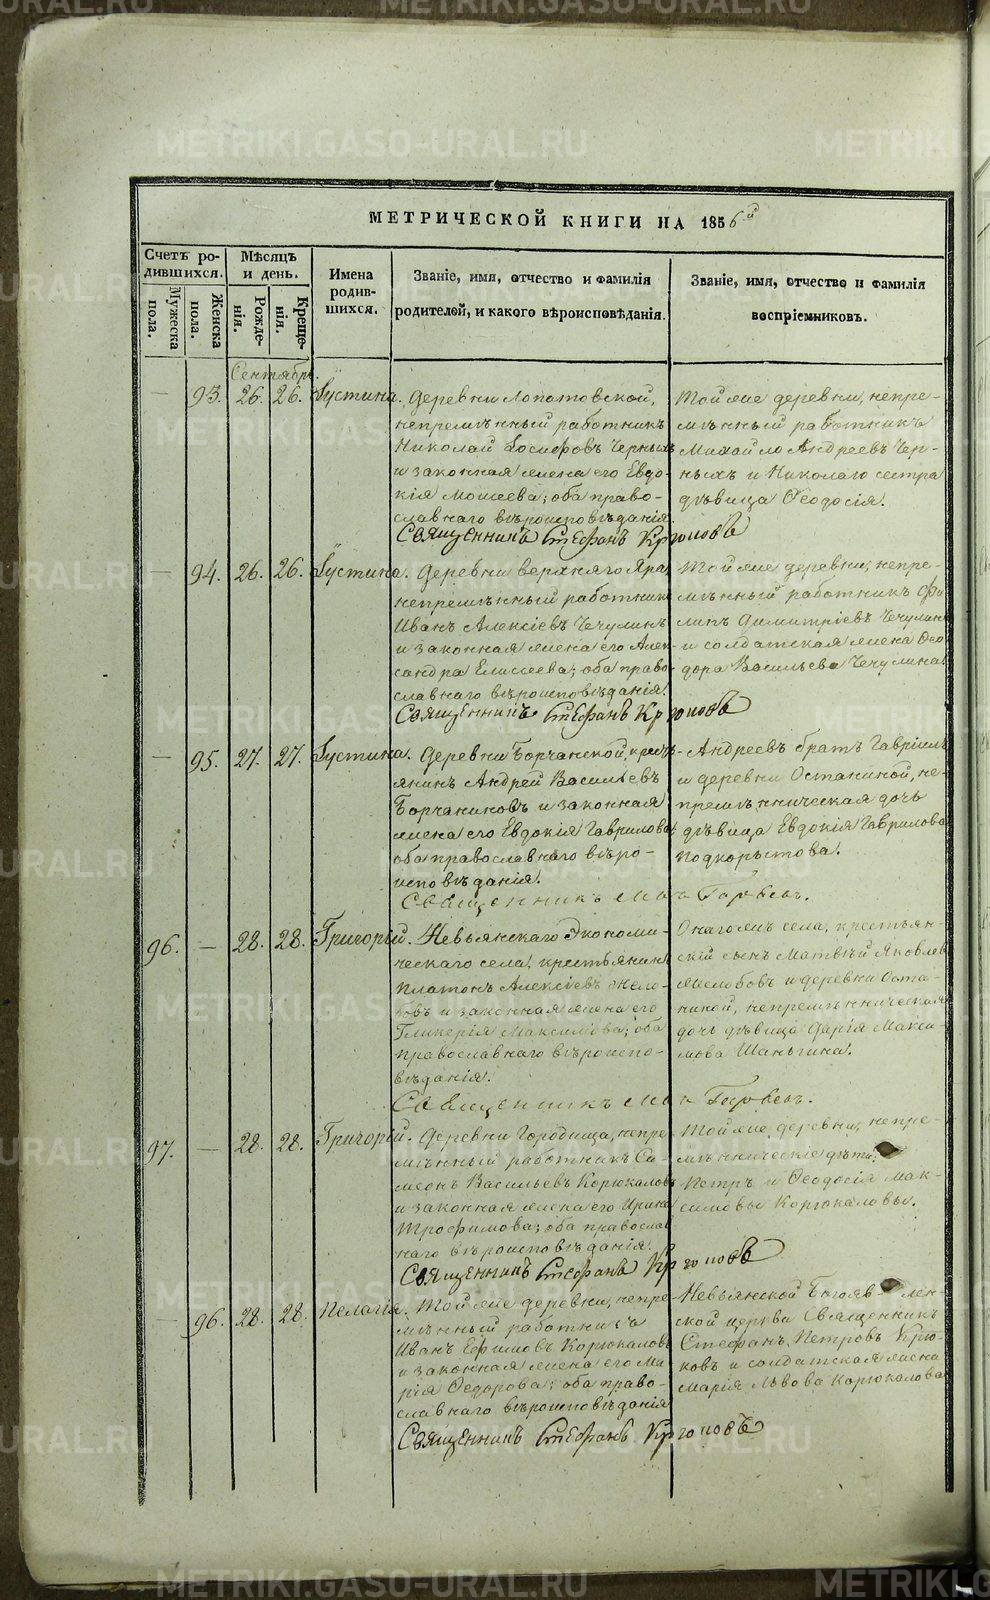 МЕТРИЧЕСКОЙ КНИГИ НА 1856й
Счетъ ро-
дившихся.
Мужеска
пола.
Женска
пола.
Мѣсяцъ
и день.
Рожде-
нія.
Креще-
нія.
Имена
родив-
шихся.
Званіе, имя, отчество и фамилія
родителей, и какого вѣроисповѣданія.
Званіе, имя, отчество и фамилія
воспріемниковъ.
Сентябрь.
— 93. 26. 26. Іустина.
Деревни Лопатовской,
непремѣнный работникъ
Николай Іосифовъ Черныхъ
и законная жена его Евдо-
кія Моисеева; оба право-
славнаго вѣроисповѣданія.
Тойже деревни, непре-
мѣнный работникъ
Михайло Андреевъ Чер-
ныхъ и Николаго сестра
дѣвица Ѳеодосія.
Священникъ Стефанъ Крюковъ
— 94. 26. 26. Іустина.
Деревни Верхняго Яра,
непремѣнный работникъ
Иванъ Алексіевъ Чечулинъ
и законная жена его Алек-
сандра Елисеева; оба право-
славнаго вѣроисповѣданія.
Тойже деревни, непре-
мѣнный работникъ Фи-
липъ Димитріевъ Чечулинъ
и солдатская жена Ѳео-
дора Васильева Чечулина.
Священникъ Стефанъ Крюковъ
— 95. 27. 27. Іустина.
Деревни Борчанской, кресть-
янинъ Андрей Васильевъ
Борчаниновъ и законная
жена его Евдокія Гаврилова;
оба православнаго вѣро-
исповѣданія.
Андреевъ братъ Гавріилъ
и деревни Останиной, не-
премѣнническая дочь
дѣвица Евдокія Гаврилова
Подкорытова.
Священникъ
96. — 28. 28. Григорій.
Невьянскаго Экономи-
ческаго села, крестьянинъ
Платонъ Алексіевъ Жело-
бовъ и законная жена его
Гликерія Максимова; оба
православнаго вѣроиспо-
вѣданія.
Онагожъ села, крестьян-
скій сынъ Матвѣй Яковлевъ
Желобовъ и деревни Оста-
ниной, непремѣнническая
дочь дѣвица Дарія Макси-
мова Шаньгина.
Священникъ
97. — 28. 28. Григорій.
Деревни Городища, непре-
мѣнный работникъ Си-
меонъ Васильевъ Корюкаловъ
и законная жена его Ирина
Трофимова; оба православ-
наго вѣроисповѣданія.
Тойже деревни, непре-
мѣнническіе дѣти:
Петръ и Ѳеодосія Мак-
симовы Корюкаловы.
Священникъ Стефанъ Крюковъ
— 96. 28. 28. Пелагія.
Тойже деревни, непре-
мѣнный работникъ
Иванъ Ефимовъ Корюкаловъ
и законная жена его Ма-
рія Ѳедорова; оба право-
славнаго вѣроисповѣданія
Невьянской Богоявлен-
ской церкви Священникъ
Стефанъ Петровъ Крю-
ковъ и солдатская жена
Марія Львова Корюкалова
Священникъ Стефанъ Крюковъ
METRIKI.GASO-URAL.RU